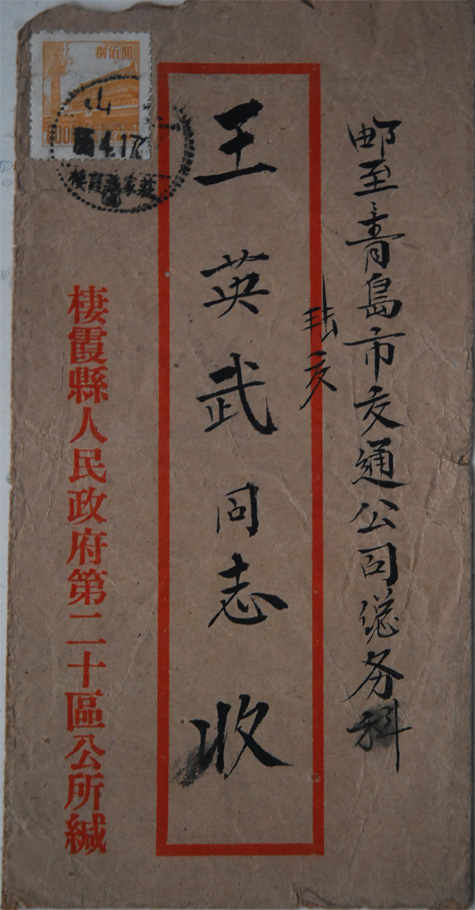 邮至青島市交通公司总务科
王英武同志收
棲霞縣人民政府第二十區公所緘
捌佰圓
800
山
4.17